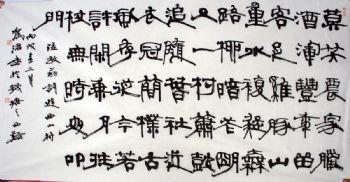 莫笑農家臘
酒渾豐年留
客足雞豚山
重水復疑無
路柳暗花明
又一村簫鼓
追隨春社近
衣冠簡樸古
風存從今若
許閒乘月拄
杖無時夜叩
門
陸放翁詩遊山西村
丙戌